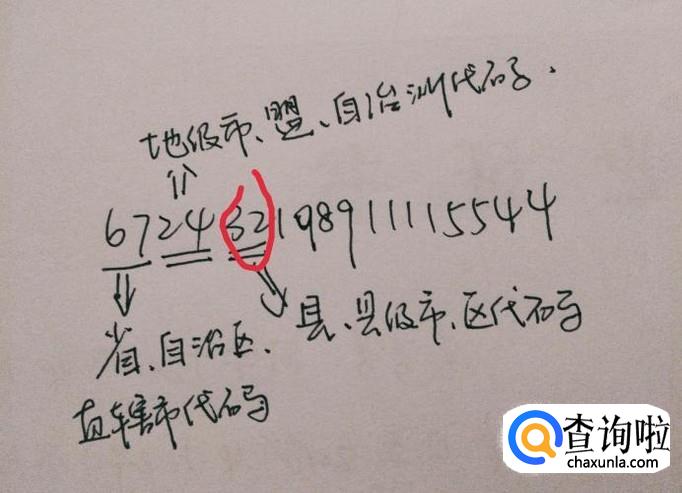 地级市、盟、自治州代码.
672432198911115544
省、自治区、
直辖市代码
县、县级市、区代码
查询啦
chaxunla.com